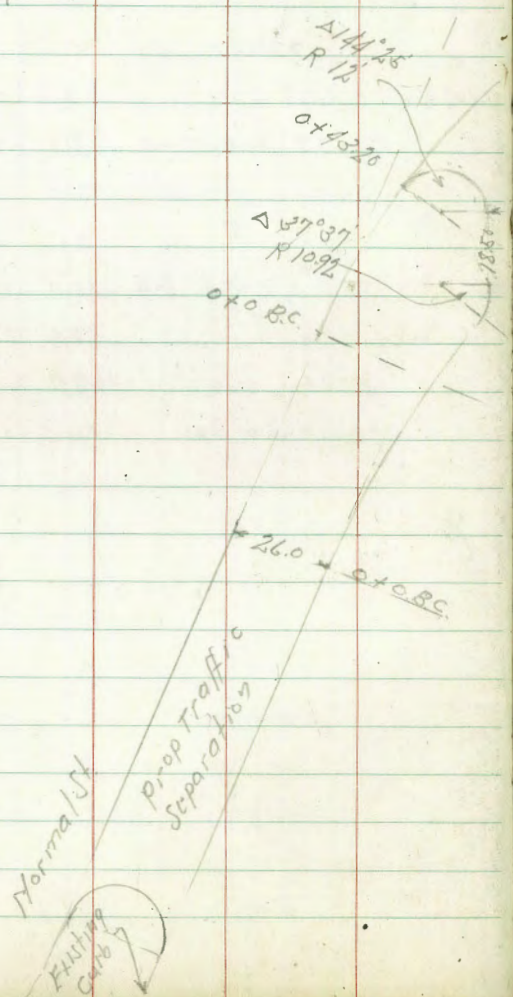 Δ 144°25'
R 12'
0+43.20
Δ 37°37'
R 10.92
18.50
0+0 B.C.
26.0
0+0 B.C.
Prop Traffic
Separation
Normal St
Existing
Curb